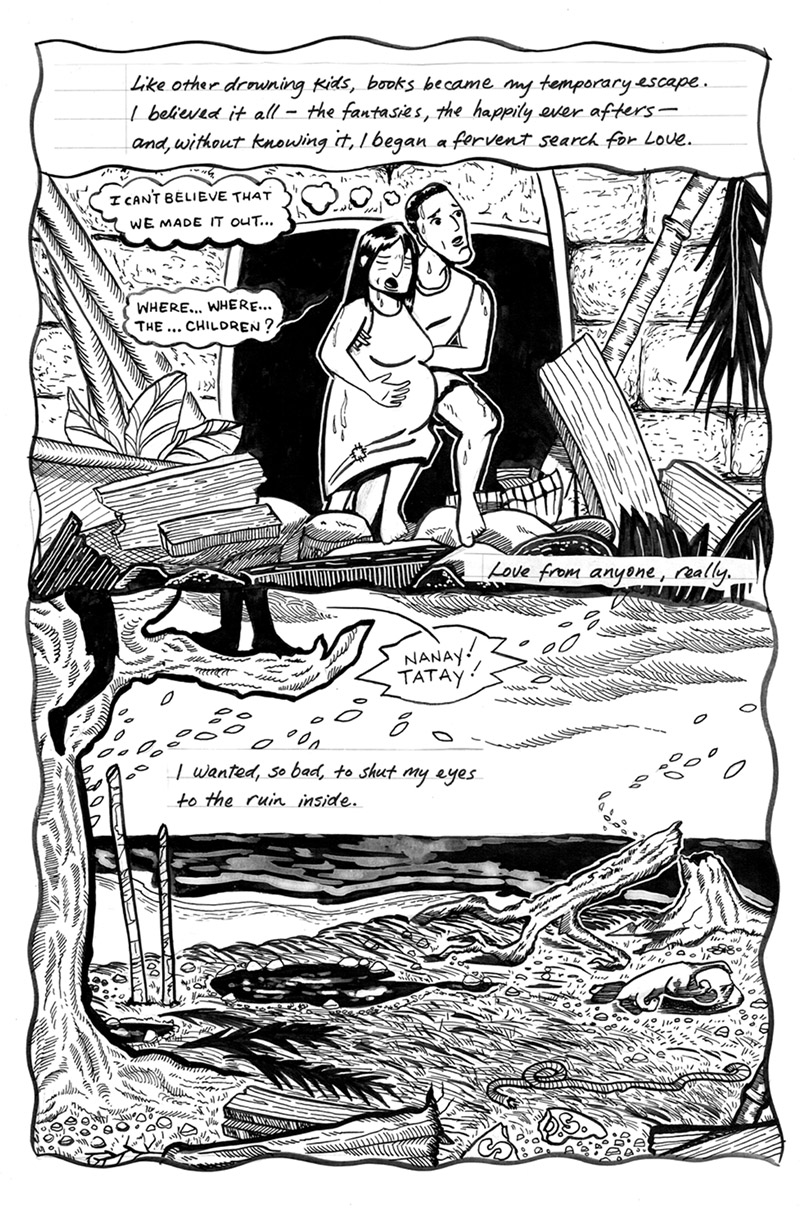 Like other drowning kids, books became my temporary escape.
I believed it all – the fantasies, the happily ever afters –
and, without knowing it, I began a fervent search for Love.
I CAN'T BELIEVE THAT
WE MADE IT OUT...
WHERE... WHERE...
THE... CHILDREN?
Love from anyone, really.
NANAY!
TATAY!
I wanted, so bad, to shut my eyes
to the ruin inside.